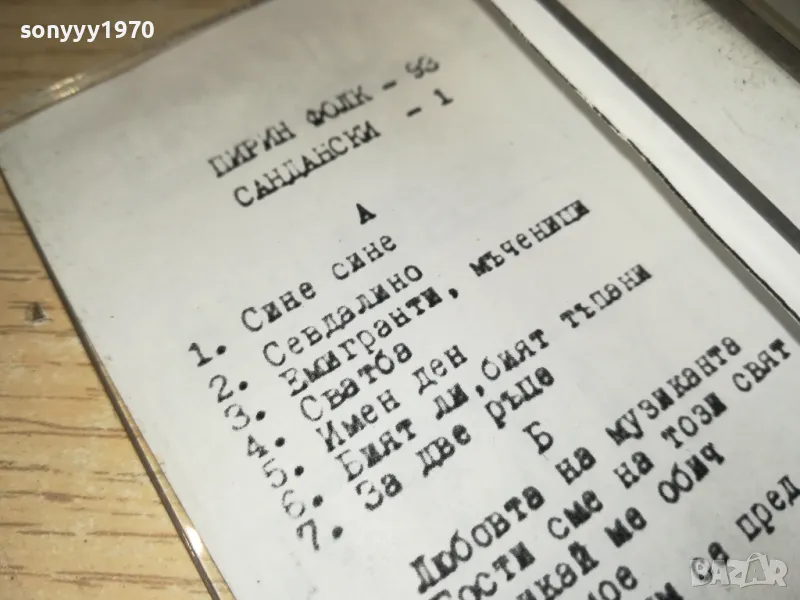 sonyyy1970
ПИРИН ФОЛК - 93
САНДАНСКИ - 1
А
1. Сине сине
2. Севдалино
3. Емигранти, мъченици
4. Сватба
5. Имен ден
6. Бият ли, бият тъпани
7. За две ръце
Б
Любовта на музиканта
Гости сме на този свят
ме обич
се пред
BAZAR